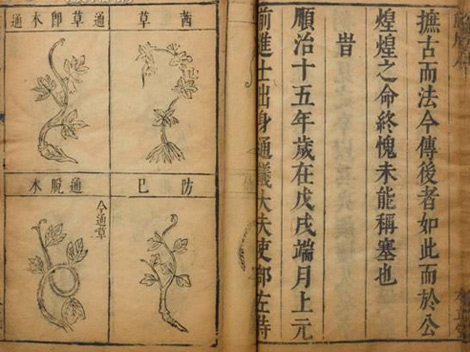 摭古而法今傳後者如此而於公
煌煌之命終愧未能稱塞也
旹
順治十五年歲在戊戌端月上元
前進士出身通議大夫吏部左侍
茜草
通草即木通
防巳
通脫木
今通草